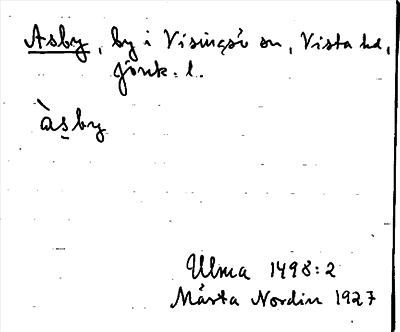 Asby, by i Visingsö sn, Vista hd,
Jönk. l.
àsby
Ulma 1498:2
Märta Nordin 1927